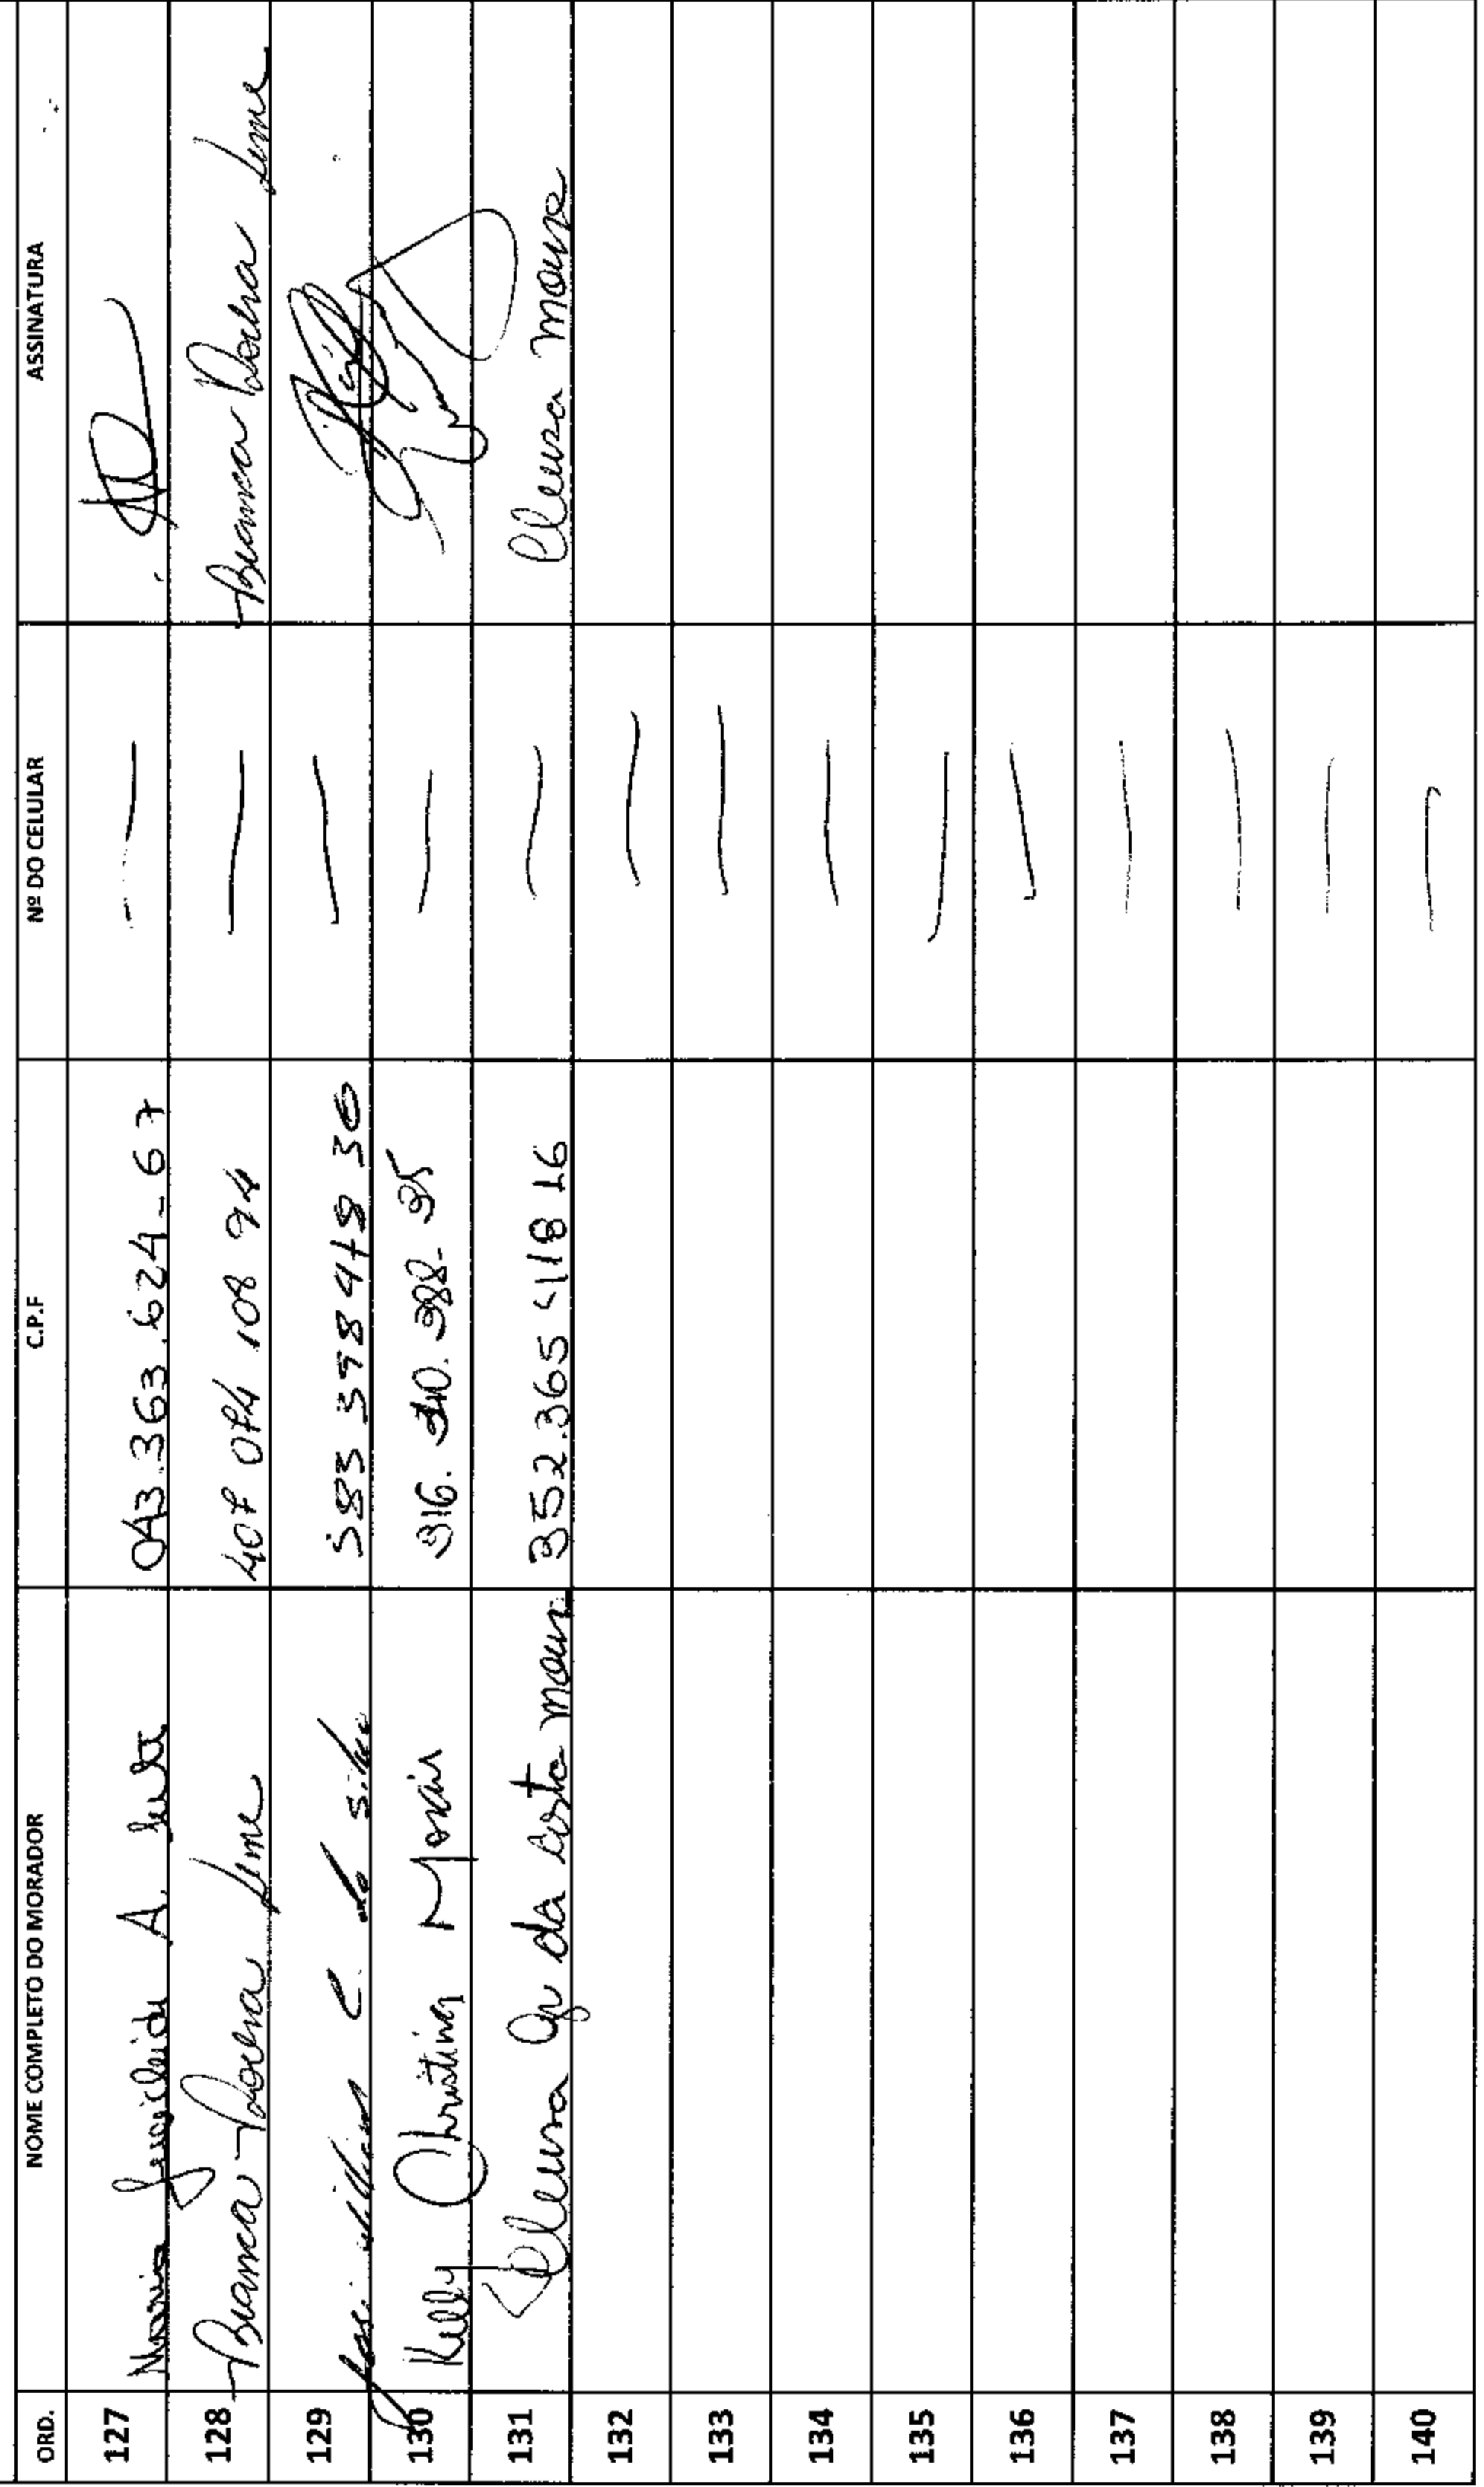 ORD. NOME COMPLETO DO MORADOR C.P.F Nº DO CELULAR ASSINATURA
127 Maria A. 043.363.624-67 —
128 Bianca Rocha Leme 407 084 108 94 — Bianca Rocha Leme
129 C. da Silva 583 398 478 30 —
130 Kelly Christina 316. 388-95 —
131 Cleuza Ap da Costa Moura 352.365 118 16 — Cleuza Moura
132 —
133 —
134 —
135 —
136 —
137 —
138 —
139 —
140 —